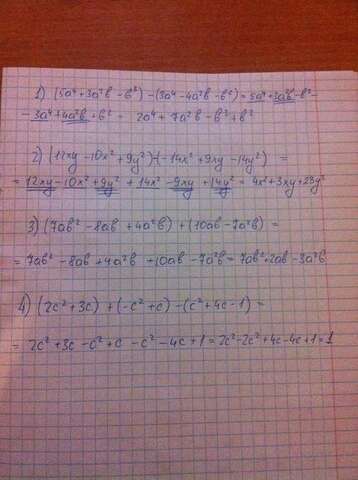 1) (5a⁴+3a²b-b³)-(3a⁴-4a²b-b²)=5a⁴+3a²b-b³-
-3a⁴+4a²b+b²= 2a⁴+7a²b-b³+b²
2) (12xy-10x²+9y²)-(-14x²+9xy-14y²) =
= 12xy-10x²+9y²+14x²-9xy+14y²= 4x²+3xy+23y²
3) (7ab²-8ab+4a²b)+(10ab-7a²b) =
= 7ab²-8ab+4a²b+10ab-7a²b= 7ab²+2ab-3a²b
4) (2c²+3c)+(-c²+c)-(c²+4c-1) =
= 2c²+3c-c²+c-c²-4c+1=2c²-2c²+4c-4c+1=1